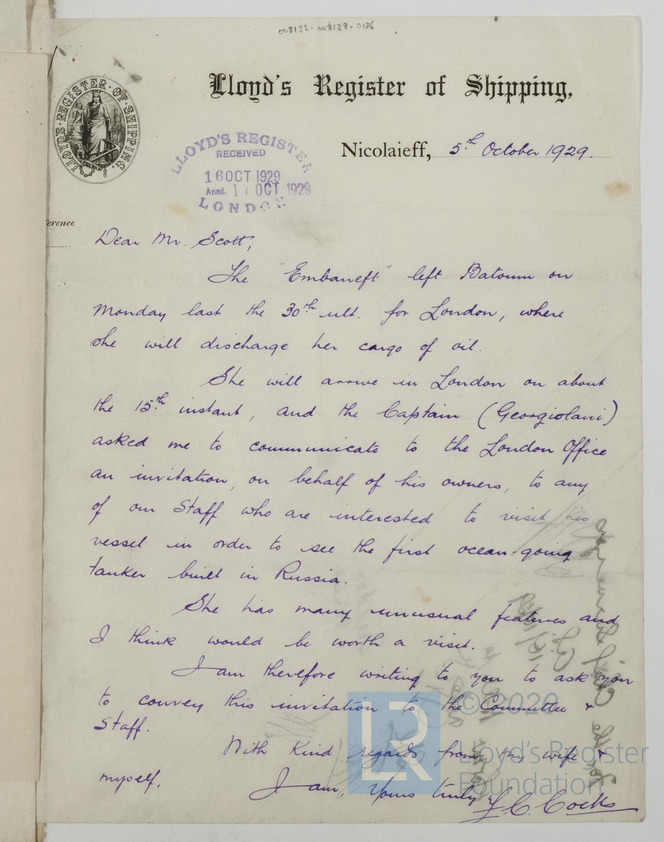 008122-008128-0186
LLOYD'S REGISTER OF SHIPPING
Lloyd's Register of Shipping,
Nicolaieff, 5th October 1929.
LLOYD'S REGISTER
RECEIVED
16 OCT 1929
Ansd. 17 OCT 1929
LONDON
Dear Mr. Scott,
The "Embaneft" left Batoum on
Monday last the 30th ult. for London, where
she will discharge her cargo of oil.
She will arrive in London on about
the 15th instant, and the Captain (Georgiolani)
asked me to communicate to the London Office
an invitation, on behalf of his owners, to any
of our Staff who are interested to visit his
vessel in order to see the first ocean-going
tanker built in Russia.
She has many unusual features and
I think would be worth a visit.
I am therefore writing to you to ask you
to convey this invitation to the Committee &
Staff.
With kind regards from my wife &
myself.
I am, Yours truly
© 2020
Lloyd's Register
Foundation
LR